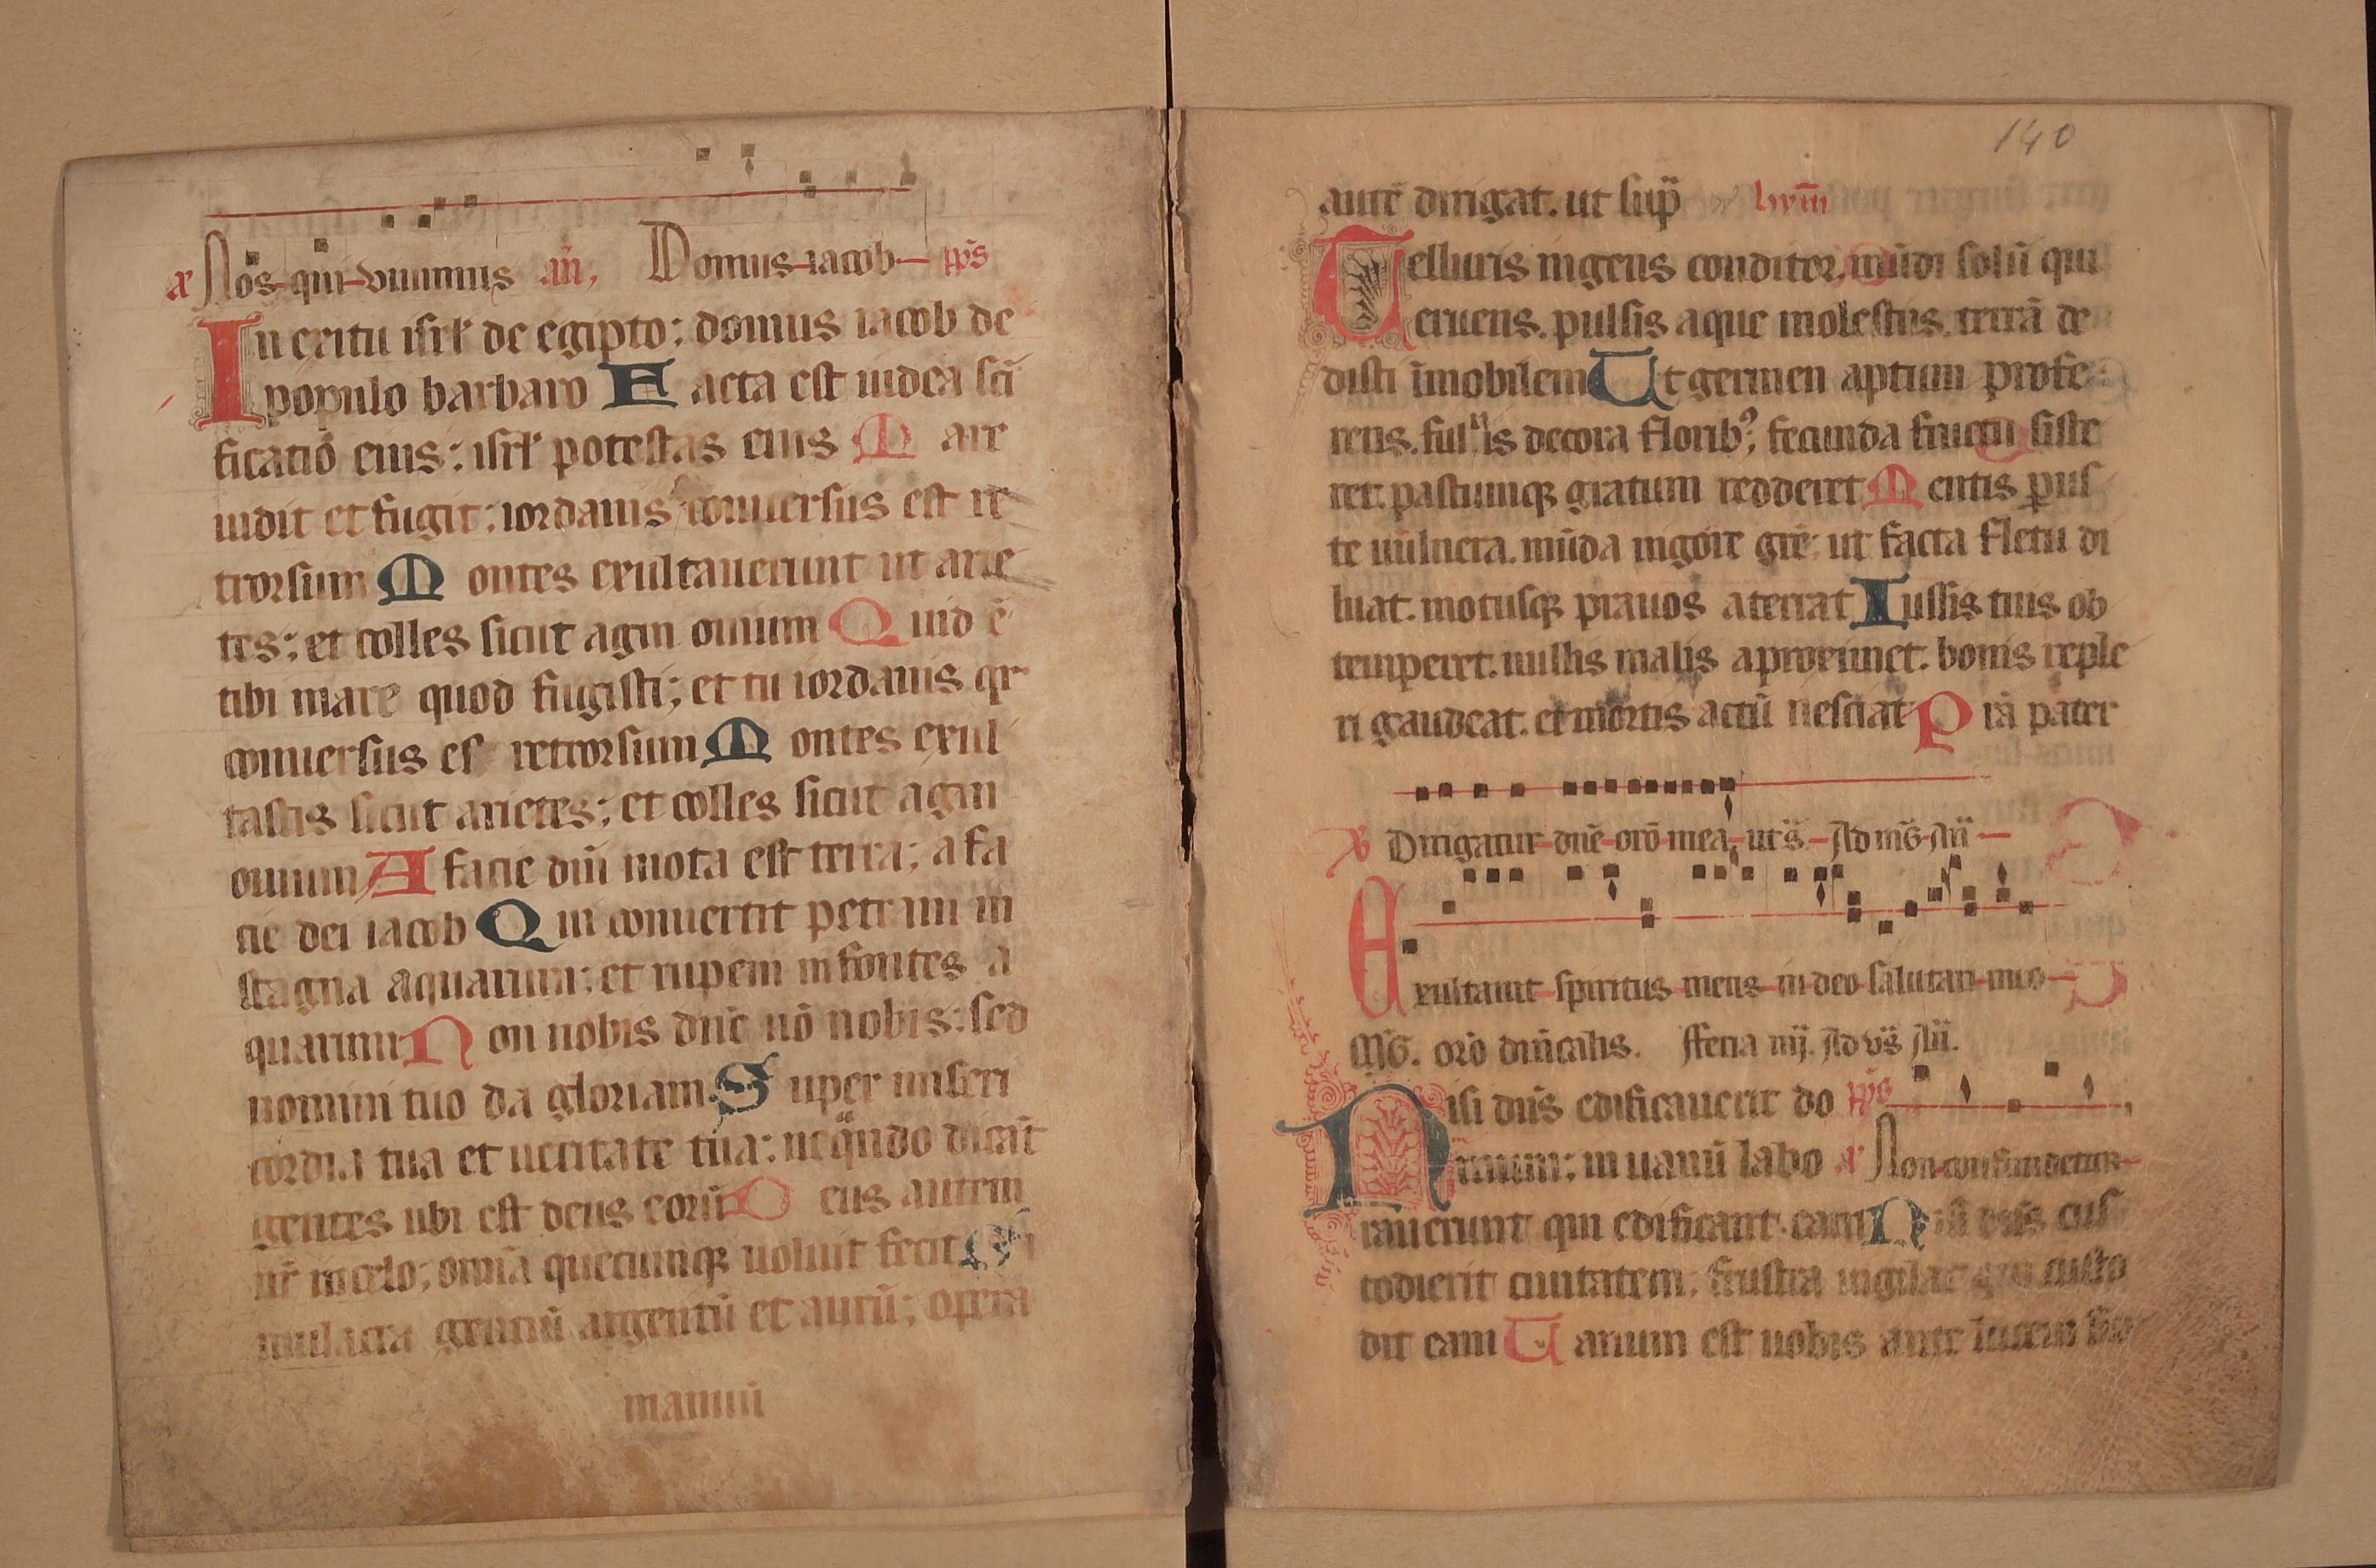 Nos qui viuimus an̄, Domus iacob ps̄
In exitu isrl' de egipto; domus iacob de
populo barbaro Facta est iudea sc̄i
ficatio eius; isrl' potestas eius Mare
uidit et fugit; iordanis conuersus est re
trorsum Montes exultauerunt ut arie
tes; et colles sicut agni ouium Quid ē
tibi mare quod fugisti; et tu iordanis qr
conuersus es retrorsum Montes exul
tastis sicut arietes; et colles sicut agni
ouium A facie dn̄i mota est terra; a fa
cie dei iacob Qui conuertit petram in
stagna aquarum; et rupem in fontes a
quarum Non nobis dn̄e nō nobis; sed
nomini tuo da gloriam. Super miseri
cordia tua et ueritate tua; neqn̄do dicāt
gentes ubi est deus eorū Deus autem
nr̄ in celo; omīa quecumq; uoluit fecit Si
mulacra gentiū argentū et aurū; opera
manuū
140
autē dirigat. ut sup̄ hym̄
Telluris ingens conditor, mūdi solū qui
eruens. pulsis aque molestiis. terrā de
disti īmobilem Ut germen aptum profe
rens. fuluis decora florib9; fecunda fructu siste
ret. pastumq; gratum redderet Mentis p̱us
te uulnera. mūda uigore gr̄e; ut facta fletu di
luat. motusq; prauos aterrat Iussis tuis ob
temperet. nullis malis aproximet. bonis reple
ri gaudeat. et mortis actū nesciat P̄rā pater
Dirigatur dn̄e orō mea, ut s̄. Ad mḡ. An̄
Exultauit spiritus meus in deo salutari meo
MḠ. orō dn̄icalis. Feria iiij. Ad vs̄ An̄.
Nisi dn̄s edificauerit do ps̄
mum; in uanū labo Non confundetur
rauerunt qui edificant eam Nisi dn̄s cus
todierit ciuitatem; frustra uigilat qui custo
dit eam Uanum est uobis ante lucem sur